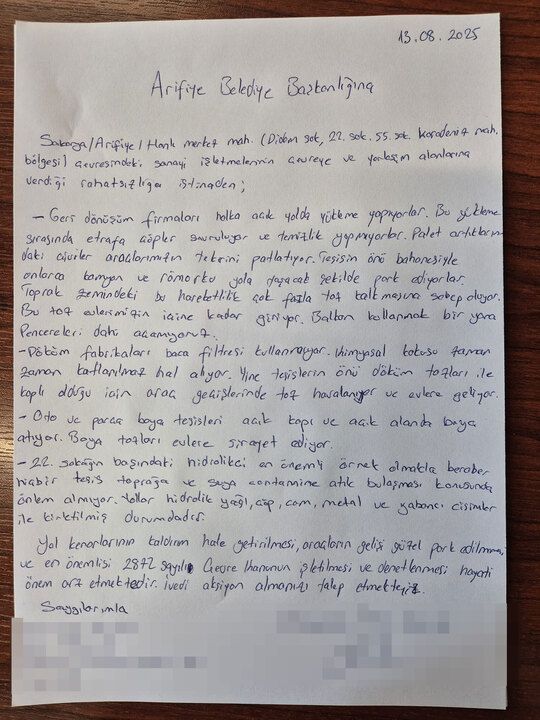 13.08.2025
Arifiye Belediye Başkanlığına
Sakarya/Arifiye/Hanlı merkez mah. (Didem sok, 22. sok. 55. sok. Karadeniz mah.
bölgesi) çevresindeki sanayi işletmelerinin çevreye ve yerleşim alanlarına
verdiği rahatsızlığa istinaden;
- Geri dönüşüm firmaları halka açık yolda yükleme yapıyorlar. Bu yükleme
sırasında etrafa çöpler savruluyor ve temizlik yapmıyorlar. Palet artıkların-
daki çiviler araçlarımızın tekrini patlatıyor. Tesisin önü bahanesiyle
onlarca kamyon ve römorku yola taşacak şekilde park ediyorlar.
Toprak zemindeki bu hareketlilik çok fazla toz kalkmasına sebep oluyor.
Bu toz evlerimizin içine kadar giriyor. Balkon kullanmak bir yana
Pencereleri dahi açamıyoruz.
- Döküm fabrikaları baca filtresi kullanmıyor. Kimyasal kokusu zaman
zaman katlanılmaz hal alıyor. Yine tesislerin önü döküm tozları ile
kaplı olduğu için araç geçişlerinde toz havalanıyor ve evlere geliyor.
- Oto ve parça boya tesisleri açık kapı ve açık alanda boya
atıyor. Boya tozları evlere sirayet ediyor.
- 22. sokağın başındaki hidrolikçi en önemli örnek olmakla beraber
hiçbir tesis toprağa ve suya contamine atık bulaşması konusunda
önlem almıyor. Yollar hidrolik yağı, çöp, cam, metal ve yabancı cisimler
ile kirletilmiş durumdadır.
Yol kenarlarının kaldırım hale getirilmesi, araçların gelişi güzel park edilmemesi
ve en önemlisi 2872 sayılı Çevre Kanunun işletilmesi ve denetlenmesi hayati
önem arz etmektedir. ivedi aksiyon almanızı talep etmekteyiz.
Saygılarımla